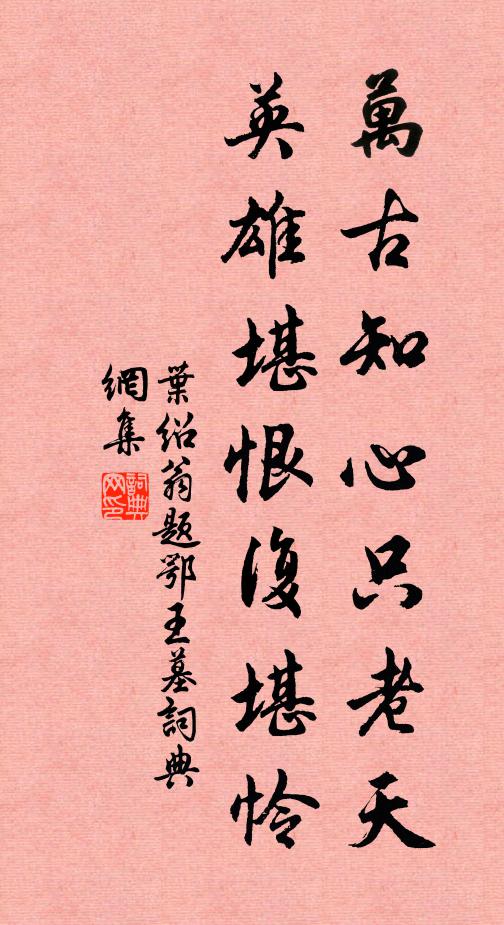 萬古知心只老天
英雄堪恨復堪怜
葉紹翁題鄂王墓詞典
網集
詞典
网印